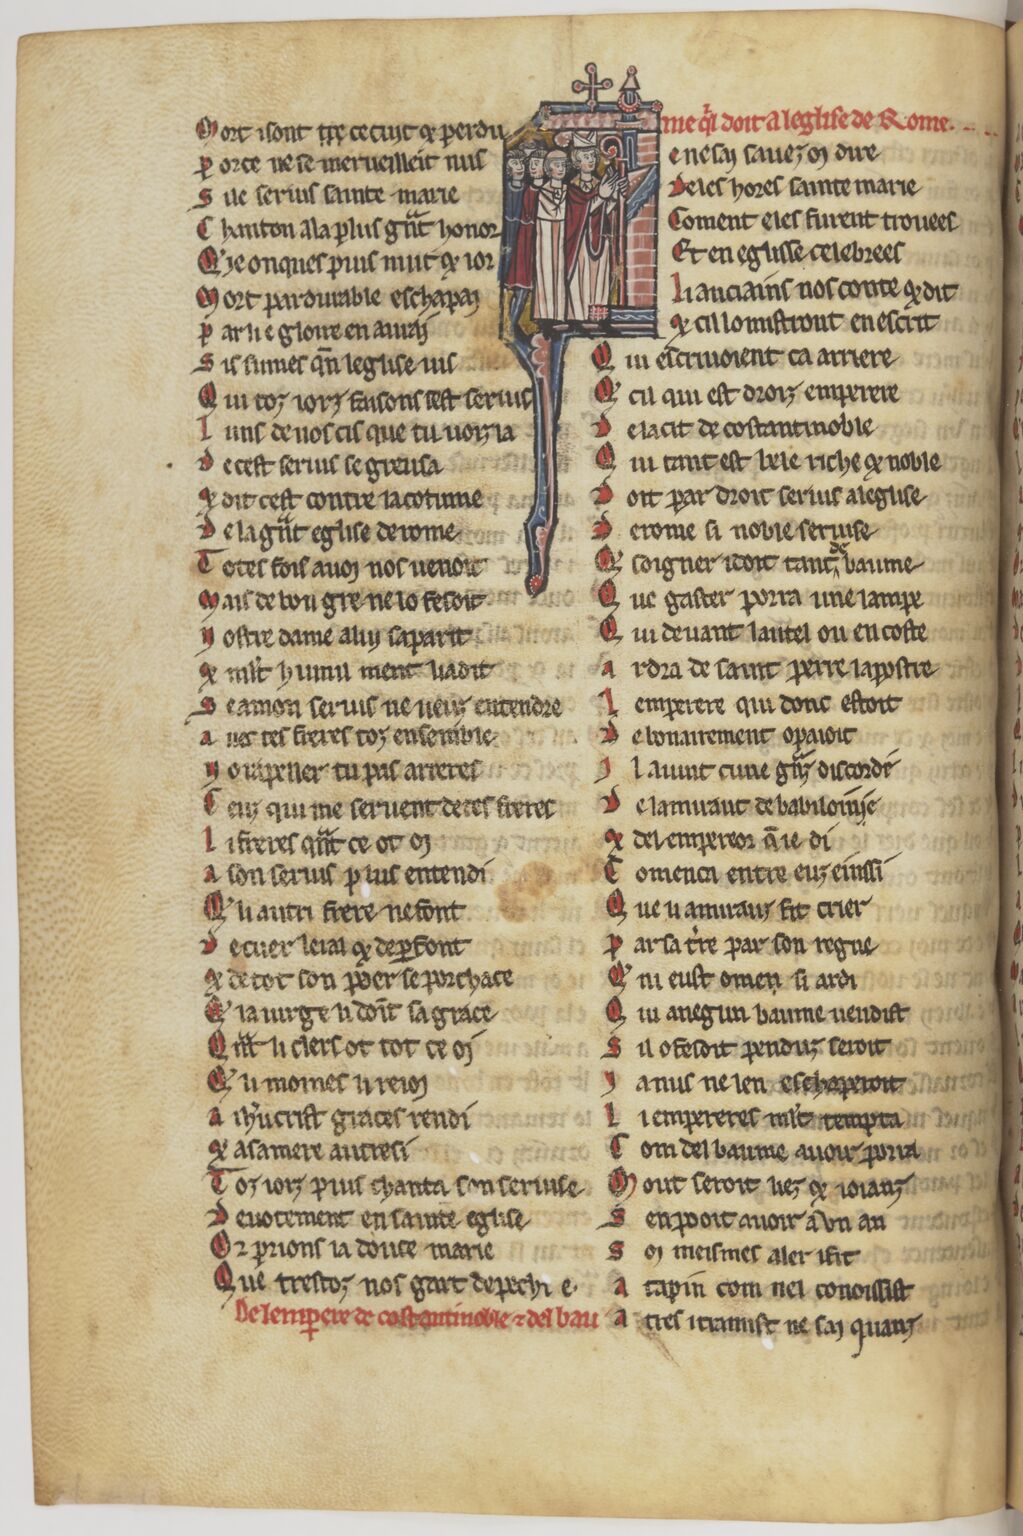 Mort isont tuit ce cuit & perdu
Por ce ne se merveilleit nus
Sue servis sainte marie
Chanton a la plus gnt honor
Que onques puis nuit & ior
Mort pardurable eschapai
Par li e gloire en aurai
Sis sumes qn leglise nis
Qui toz iorz faisons cest servis
Luns de nos cis que tu uoiz ia
De cest servis se greusa
& dit cest contre la cotume
De la gnt eglise de rome
Totes fois auoc nos uenoit
Mais de bon gre ne lo fesoit
Nostre dame a lui saparit
& mlt humilment li a dit
Se a mon servis ne ueuz entendre
Auec tes freres toz ensemble
Non apeller tu pas arreres
Ceuz qui me seruent de tes freres
Li freres qnt ce ot oi
A son servis plus entendi
Qli autri frere ne font
De cuer leial & de parfont
& de tot son poer se porchace
Q la uirge li doint sa grace
Qnt li clers ot tot ce oi
Q li moines li rei oi
A ihucrist graces rendi
& a sa mere autresi
Toz iorz puis chanta son servise
Devotement en sainte eglise
Or prions la douce marie
Que trestoz nos gart de pechi e
De lempere de costantinoble & del bau
me ql doit a leglise de Rome
e ne sai sauez oi dire
De les hores sainte marie
Coment eles furent trouees
Et en eglisse celebrees
Li anciains nos conte & dit
& cil lo mistrent en escrit
Qui escriuoient ca arriere
Q cil qui est droiz emperere
De la cit de costantinoble
Qui tant est bele riche & noble
Doit par droit servis a leglise
De rome si noble servise
Q soigner i doit tant de baume
Que gaster porra une lampe
Qui deuant lautel ou en coste
Ardra de saint perre lapostre
Lemperere qui donc estoit
Debonairement o paioit
Il auint cune gnz discorde
De lamiraut de babiloinie
& del empereor q ie di
Comenca entre euz einssi
Que li amirauz fit crier
Par sa tre par son regne
Q ni eust omen si ardi
Qui a negun baume uendist
Sil o fesoit penduz seroit
Ia nus ne len eschaperoit
Li empereres mlt tempta
Com del baume auoir porra
Mout seroit liez & ioianz
Sen pooit auoir a un an
Soi meismes aler i fit
A tapin com nel conoissist
A tres itramist ne sai quanz